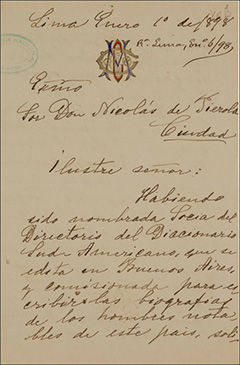 Lima Enero 1º de 1898
Rn. Lima, Eno. 6/98
Exmo
Sor Don Nicolás de Pierola
Ciudad
Ilustre señor:
Habiendo
sido nombrada Socia del
Directorio del Diaccionario
Sud-Americano, que se
edita en Buenos Aires,
y comisionada para es
cribir las biografias
de los hombres nota
bles de este pais, soli